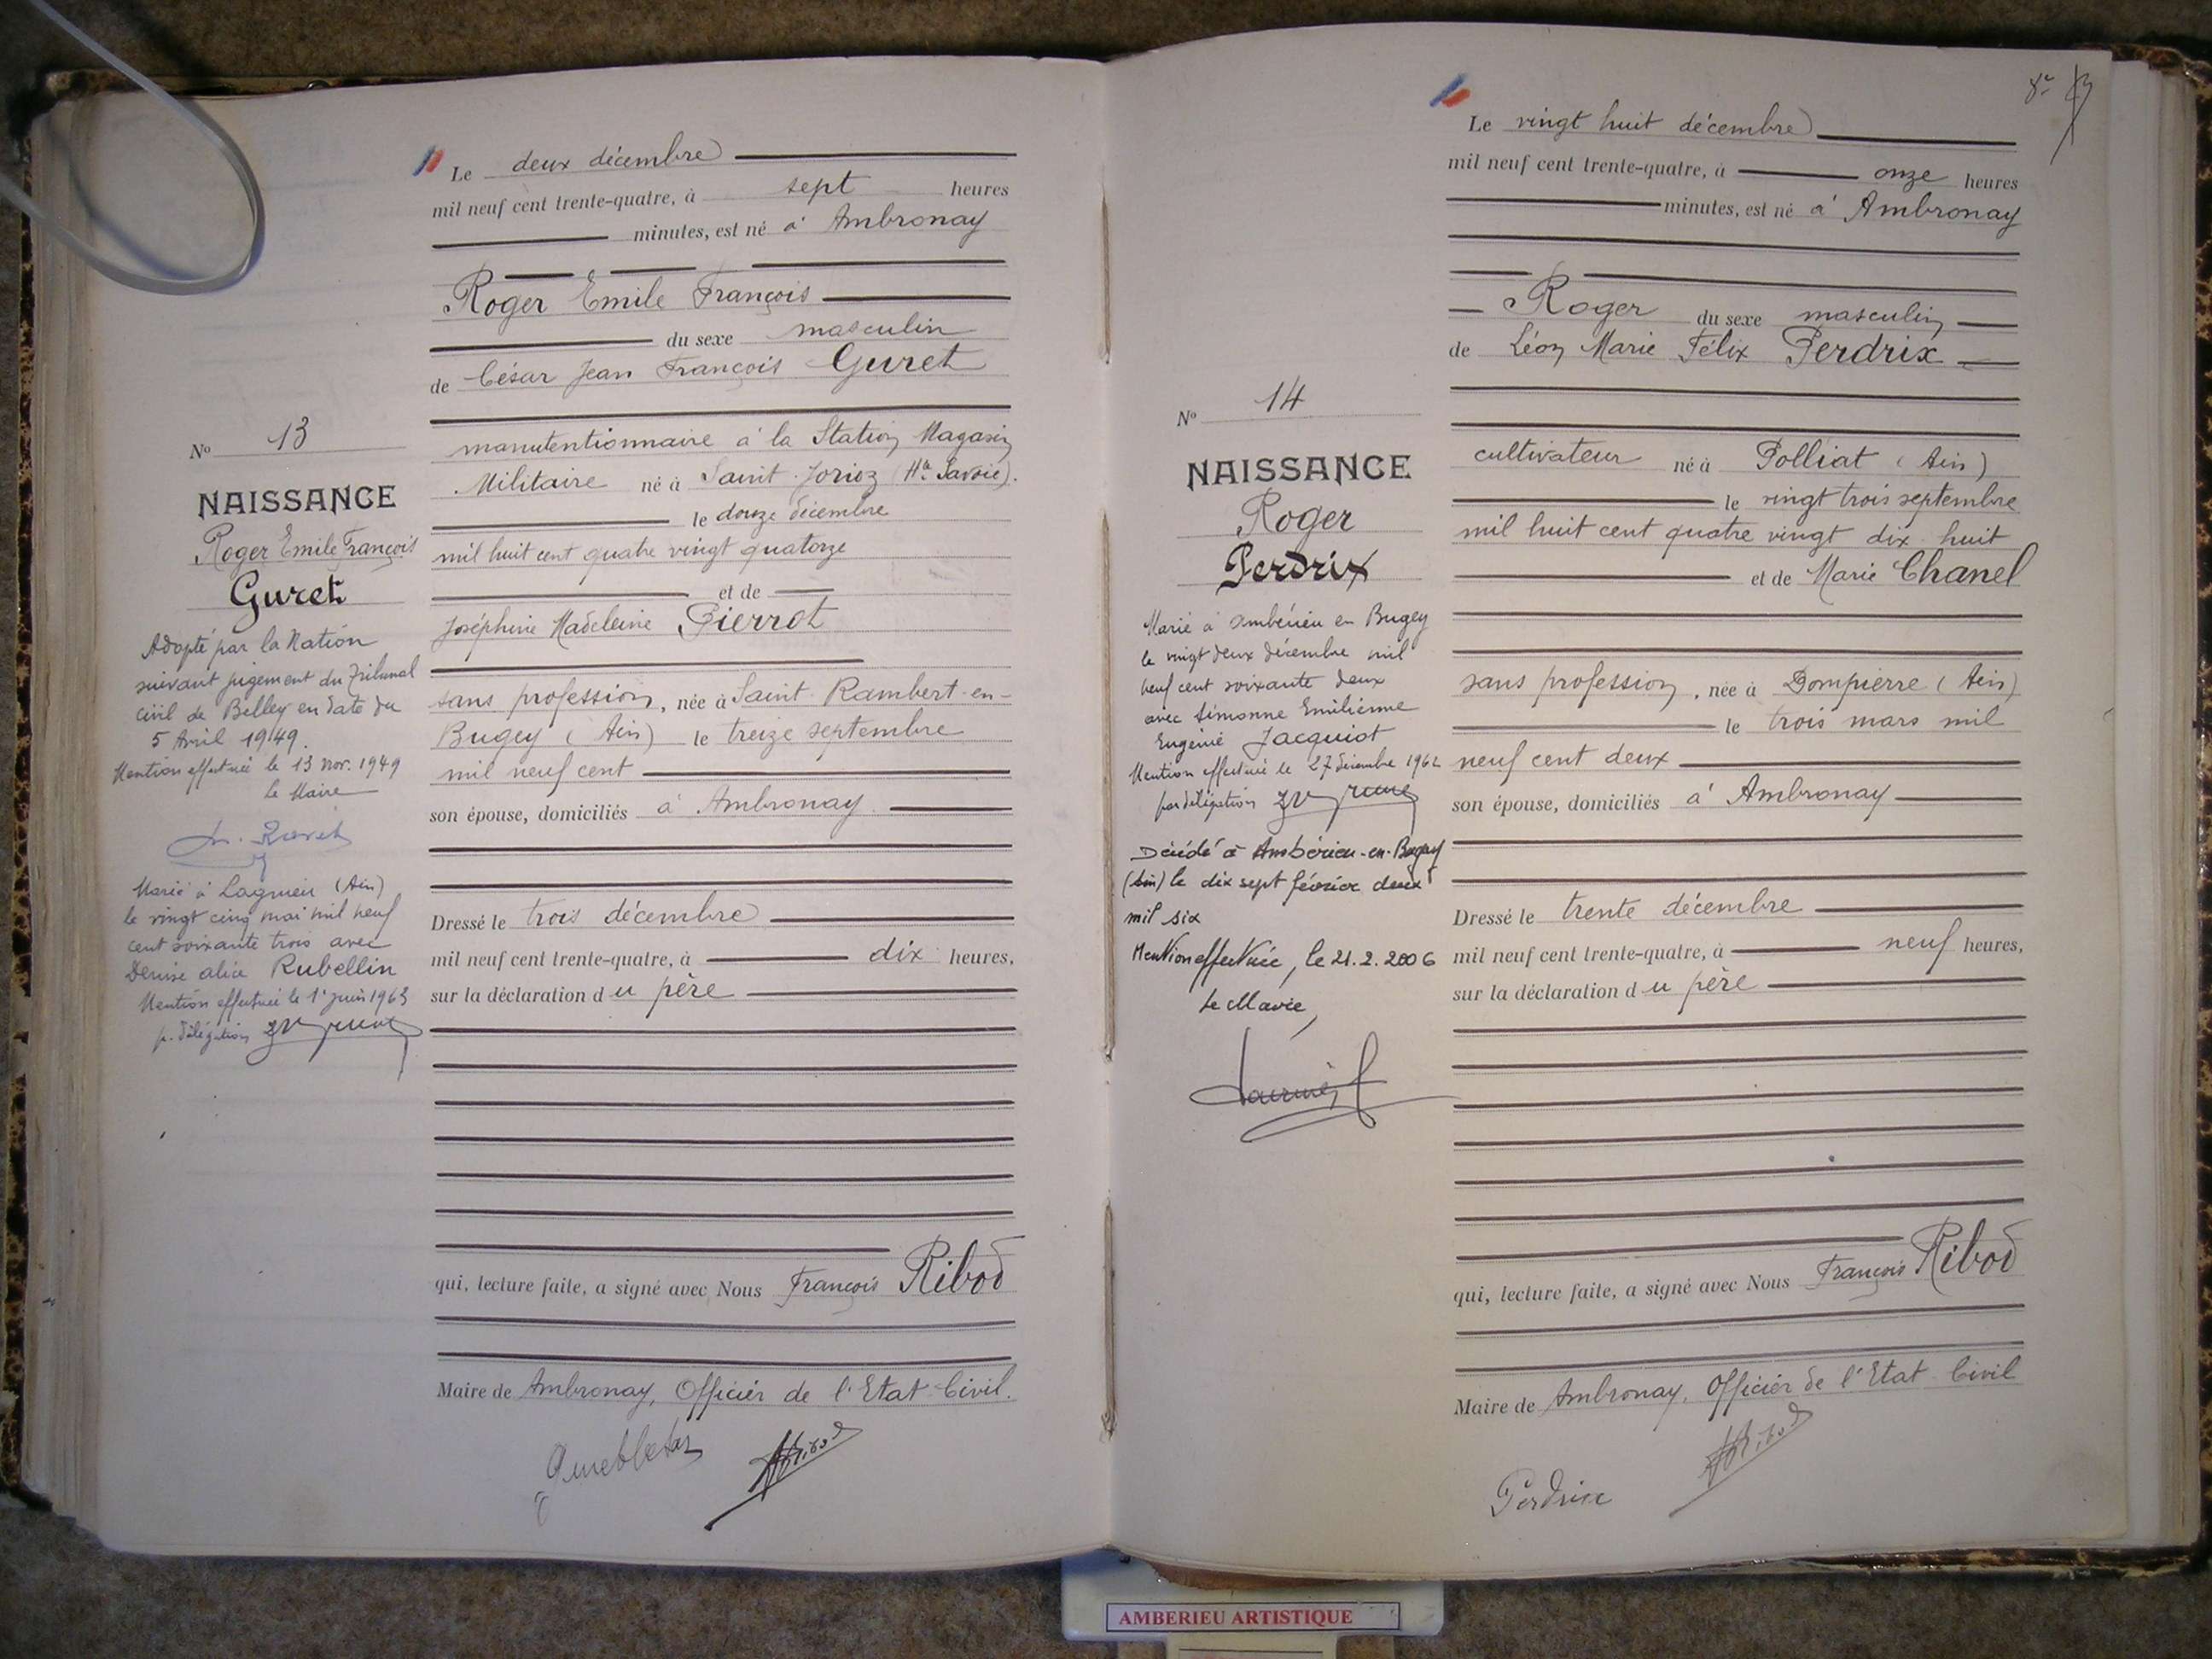 Le deux décembre
mil neuf cent trente-quatre, à sept heures
minutes, est né à Ambronay
Roger Emile François
du sexe masculin
de César Jean François Guret
manutentionnaire à la Station Magasin
Militaire né à Saint Jorioz (Hte Savoie).
le douze décembre
mil huit cent quatre vingt quatorze
et de
Joséphine Madeleine Pierrot
sans profession, née à Saint Rambert-en-
Bugey (Ain) le treize septembre
mil neuf cent
son épouse, domiciliés à Ambronay
Dressé le trois décembre
mil neuf cent trente-quatre, à dix heures,
sur la déclaration du père
qui, lecture faite, a signé avec Nous François Ribod
Maire de Ambronay, Officier de l'Etat-Civil.
No 13
NAISSANCE
Roger Emile François
Guret
Adopté par la Nation
suivant jugement du Tribunal
civil de Belley en date du
5 Avril 1949.
Mention effectuée le 13 nov. 1949
Le Maire
Marié à Lagnieu (Ain)
le vingt cinq mai mil neuf
cent soixante trois avec
Denise Alice Rubellin
Mention effectuée le 1er juin 1963
p. délégation
8e
Le vingt huit décembre
mil neuf cent trente-quatre, à onze heures
minutes, est né à Ambronay
Roger du sexe masculin
de Léon Marie Félix Perdrix
cultivateur né à Polliat (Ain)
le vingt trois septembre
mil huit cent quatre vingt dix huit
et de Marie Chanel
sans profession, née à Dompierre (Ain)
le trois mars mil
neuf cent deux
son épouse, domiciliés à Ambronay
Dressé le trente décembre
mil neuf cent trente-quatre, à neuf heures,
sur la déclaration du père
qui, lecture faite, a signé avec Nous François Ribod
Maire de Ambronay, Officier de l'Etat-Civil
Perdrix
No 14
NAISSANCE
Roger
Perdrix
Marié à Ambérieu en Bugey
le vingt deux décembre mil
neuf cent soixante deux
avec Simonne Emilienne
Eugénie Jacquiot
Mention effectuée le 27 décembre 1962
par délégation
Décédé à Ambérieu-en-Bugey
(Ain) le dix sept février deux
mil six
Mention effectuée, le 21.2.2006
Le Maire,
AMBERIEU ARTISTIQUE